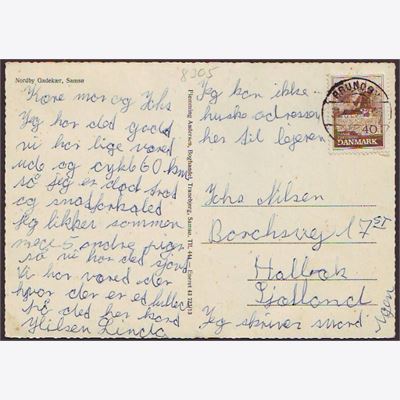 Nordby Gadekær, Samsø
8305
Kære mor og Johs
Jeg har det godt
vi har lige vared
ude og cykle 60 km
så jeg er død træt
og snotforkøled
Jeg ligger sammen
med 5 andre piger
så vi har det sjovt
Vi har vared der
hvor der er et kryds
på det her kort
Hilsen Linda
Flemming Andersen, Boghandel, Tranebjerg, Samsø. Tlf. 144. Eneret
Jeg kan ikke
huske adressen
her til lejren
BRUNDBY
40
DANMARK
Johs Nilsen
Borchsvej 17 ST
Holbæk
Sjælland
Jeg skriver snard
Igen